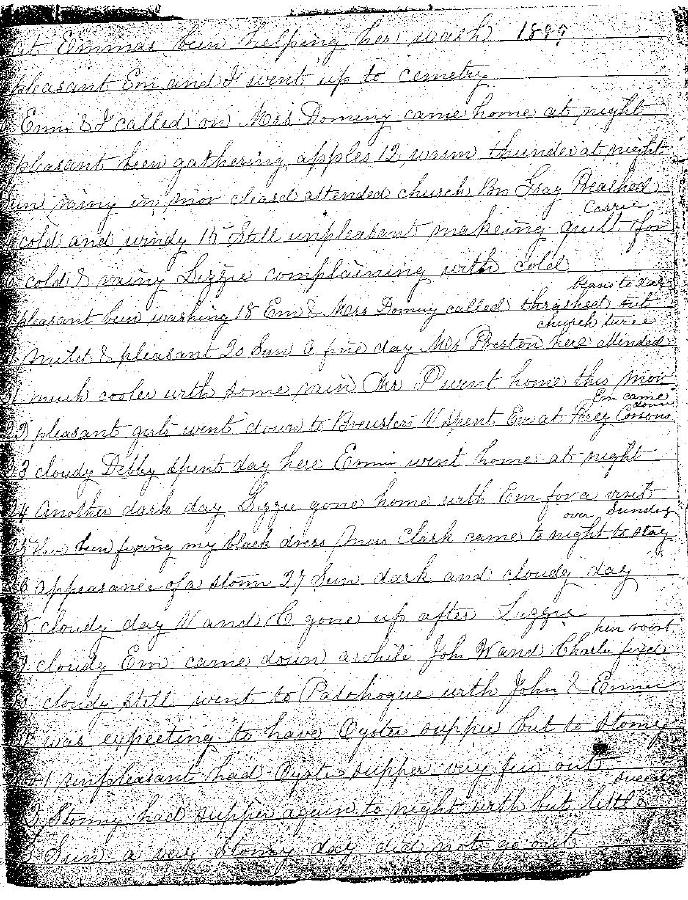 at Emmas been helping her wash 1889
pleasant Em and I went up to cemetry
Emm & I called on Mrs Doming came home at night
pleasant been gathering apples 12 warm thunder at night
Sun rainy in mor cleard attended church Bro Gray Preached
Carrie
cold and windy 15 Still unpleasant makeing quilt for
cold & rainy Lizzie complaining with cold
beans to day
pleasant been washing 18 Em & Mrs Doming called thrashed out
church twice
mild & pleasant 20 Sun a fine day Mrs Preston here attended
much cooler with some rain Mrs P went home this mor
Em came down
22 pleasant girls went down to Brewsters V spent Eve at Corsons
23 cloudy Debby spent day here Emm went home at night
24 Another dark day Lizzie gone home with Em for a visit
over Sunday
25 been fixing my black dress Miss Clark came to night to stay
26 appearance of a storm 27 Sun dark and cloudy day
28 cloudy day V and C gone up after Lizzie
hen roost
29 cloudy Em came down awhile John W and Charlie fixed
cloudy still went to Patchogue with John & Emma
was expecting to have Oyster supper but to stormy
1 unpleasant had Oyster supper very few out
success
Stormy had supper again to night with but little
Sun a very stormy day did not go out